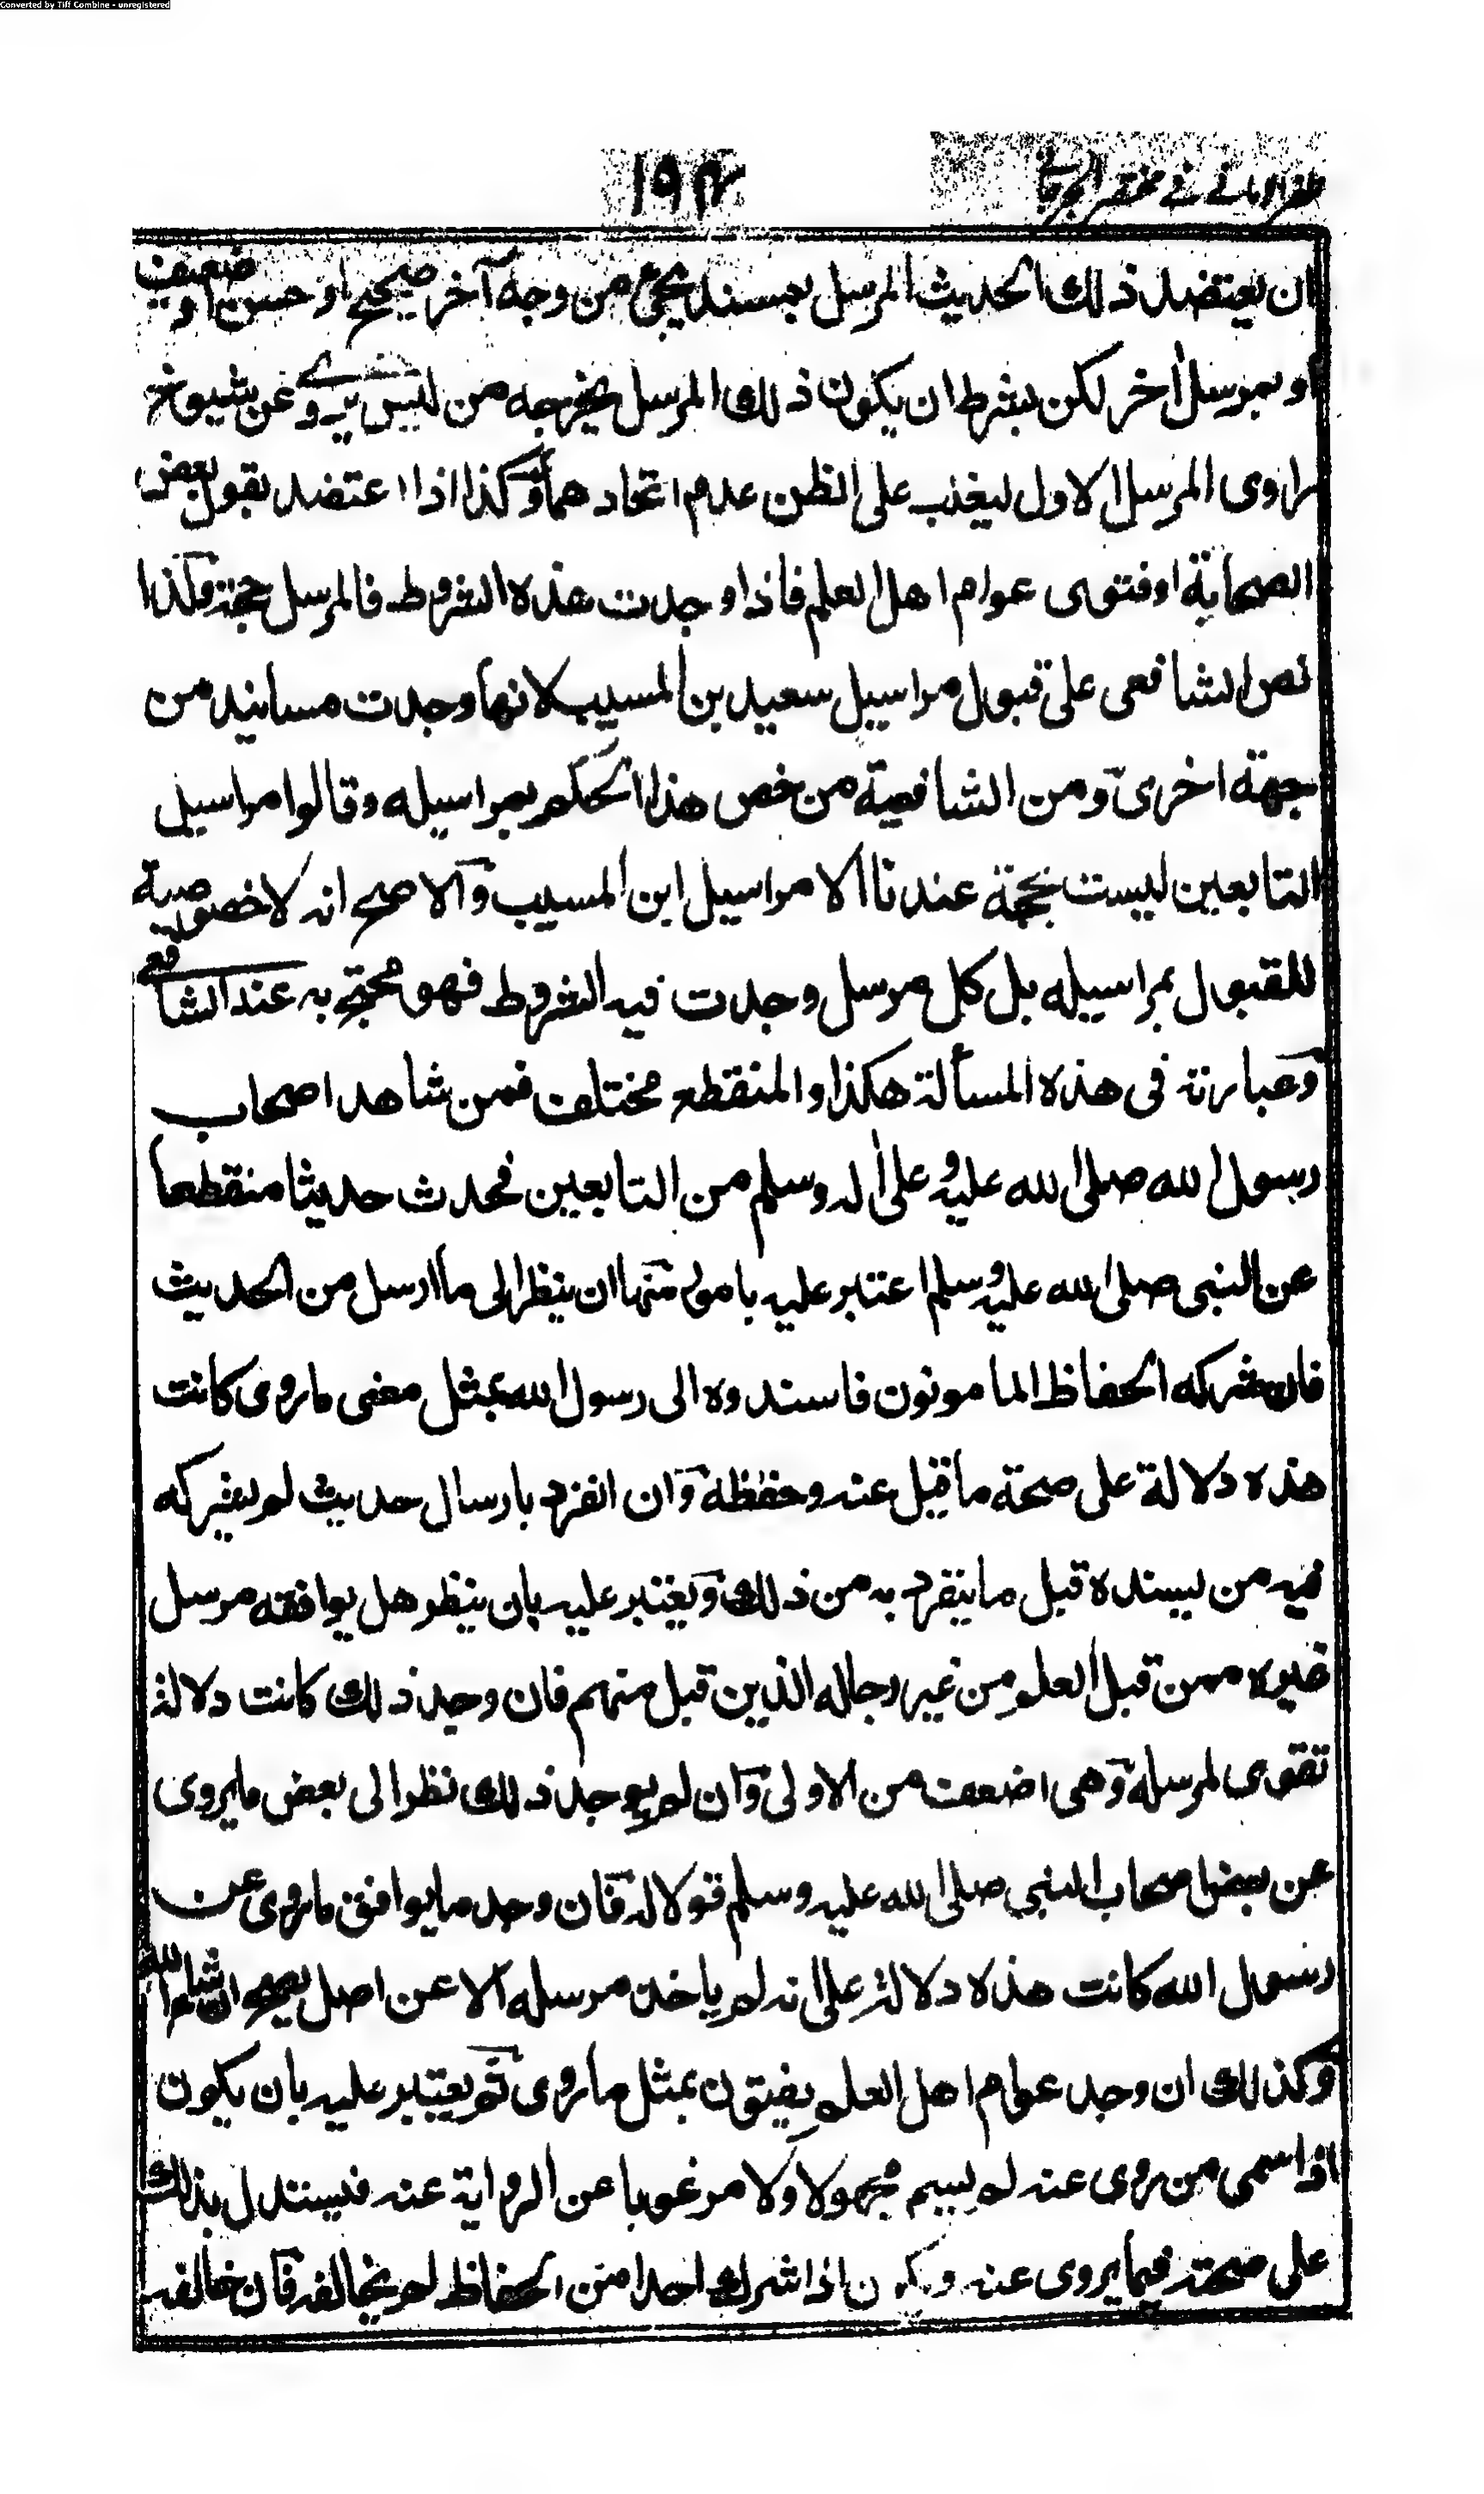 Converted by Tiff Combine - unregistered
ظفر الامانى فى مختصر الجرجانى
١٩٢
ان يعتضد ذلك الحديث المرسل بمسند يجئ من وجه آخر صحيح او حسن او ضعيف
او بمرسل اخر لكن بشرط ان يكون ذلك المرسل يخرجه من ليس يروى عن شيوخ
راوى المرسل الاول ليغلب على الظن عدم اتحادهما وكذا اذا اعتضد بقول بعض
الصحابة او فتوى عوام اهل العلم فاذا وجدت هذه الشروط فالمرسل حجة وكذا
نص الشافعى على قبول مراسيل سعيد بن المسيب لانها وجدت مسانيد من
جهة اخرى ومن الشافعية من خص هذا الحكم بمراسيله وقالوا مراسيل
التابعين ليست بحجة عندنا الا مراسيل ابن المسيب والاصح انه لا خصوصية
للقبول بمراسيله بل كل مرسل وجدت فيه الشروط فهو محتج به عند الشافعى
وعبارته فى هذه المسألة هكذا والمنقطع مختلف فمن شاهد اصحاب
رسول الله صلى الله عليه وعلى اله وسلم من التابعين فحدث حديثا منقطعا
عن النبى صلى الله عليه وسلم اعتبر عليه بامور منها ان ينظر الى ما ارسل من الحديث
فان شركه الحفاظ المامونون فاسندوه الى رسول الله بمثل معنى ما روى كانت
هذه دلالة على صحة ما قبل عنه وحفظه وان انفرد بارسال حديث لم يشركه
فيه من يسنده قبل ما ينفرد به من ذلك ويعتبر عليه بان ينظر هل يوافقه مرسل
غيره ممن قبل العلم من غير رجاله الذين قبل منهم فان وجد ذلك كانت دلالة
تقوى لمرسله وهى اضعف من الاولى وان لم يوجد ذلك نظر الى بعض ما يروى
عن بعض اصحاب النبى صلى الله عليه وسلم قولا له فان وجد ما يوافق ما روى عن
رسول الله كانت هذه دلالة على انه لم ياخذ مرسله الا عن اصل يصح ان شاء الله
وكذلك ان وجد عوام اهل العلم يفتون بمثل ما روى ثم يعتبر عليه بان يكون
اذا سمى من روى عنه لم يسم مجهولا ولا مرغوبا عن الرواية عنه فيستدل بذلك
على صحته فيما يروى عنه ويكون اذا شرك احدا من الحفاظ لم يخالفه فان خالفه